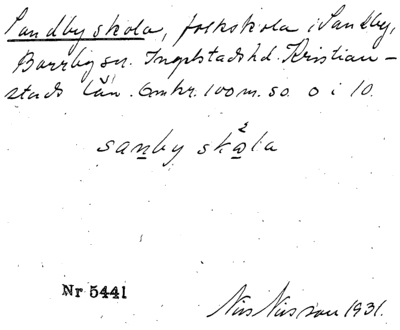 Sandby skola, folkskola i Sandby,
Borrby sn. Ingelstads hd. Kristian-
stads län. Omkr. 100 m. so. o i 10.
sanby skola
Nr 5441
Nils Nilsson 1931.